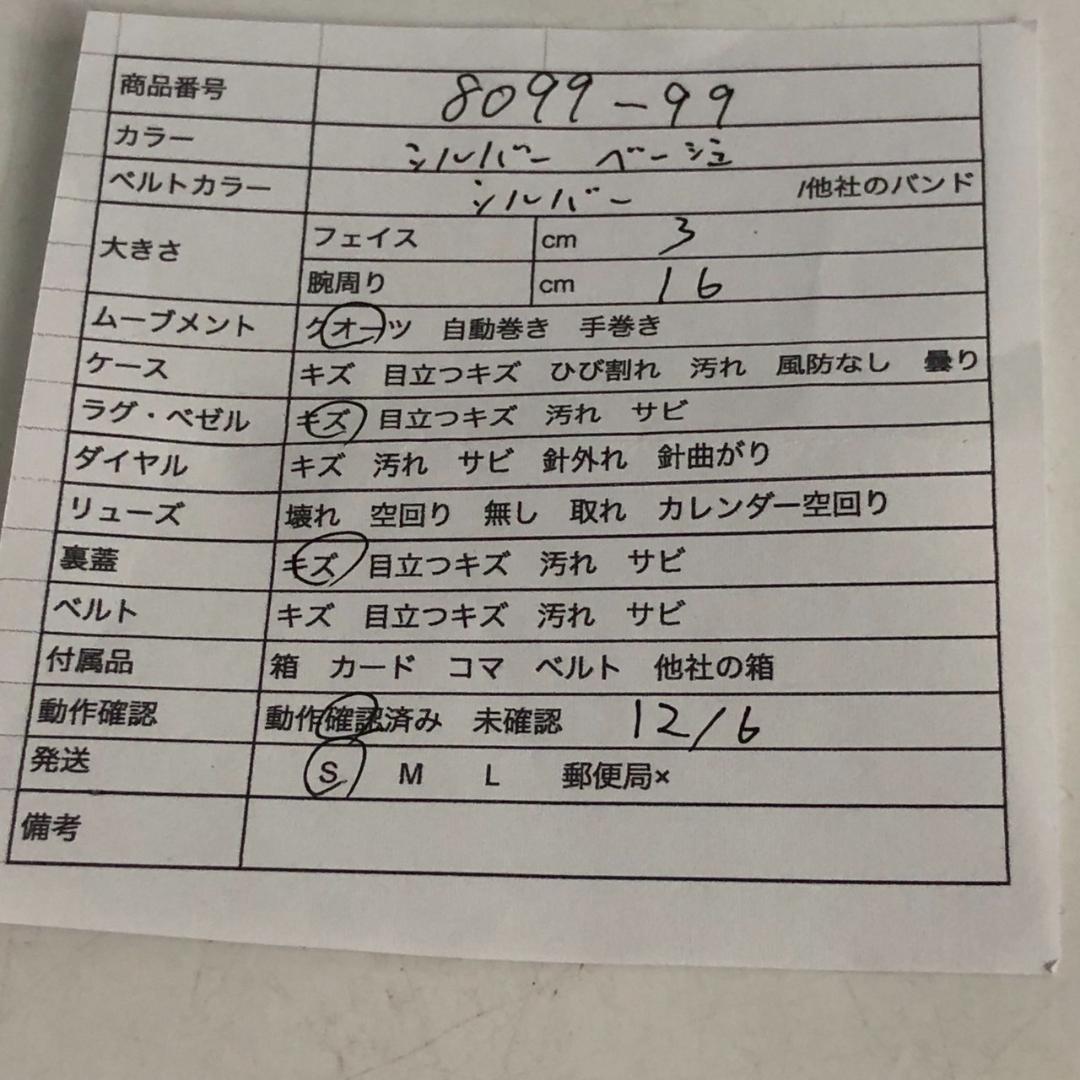 商品番号 8099-99
カラー シルバー ベージュ
ベルトカラー シルバー /他社のバンド
大きさ フェイス cm 3
腕周り cm 16
ムーブメント クオーツ 自動巻き 手巻き
ケース キズ 目立つキズ ひび割れ 汚れ 風防なし 曇り
ラグ・ベゼル キズ 目立つキズ 汚れ サビ
ダイヤル キズ 汚れ サビ 針外れ 針曲がり
リューズ 壊れ 空回り 無し 取れ カレンダー空回り
裏蓋 キズ 目立つキズ 汚れ サビ
ベルト キズ 目立つキズ 汚れ サビ
付属品 箱 カード コマ ベルト 他社の箱
動作確認 動作確認済み 未確認 12/6
発送 S M L 郵便局×
備考